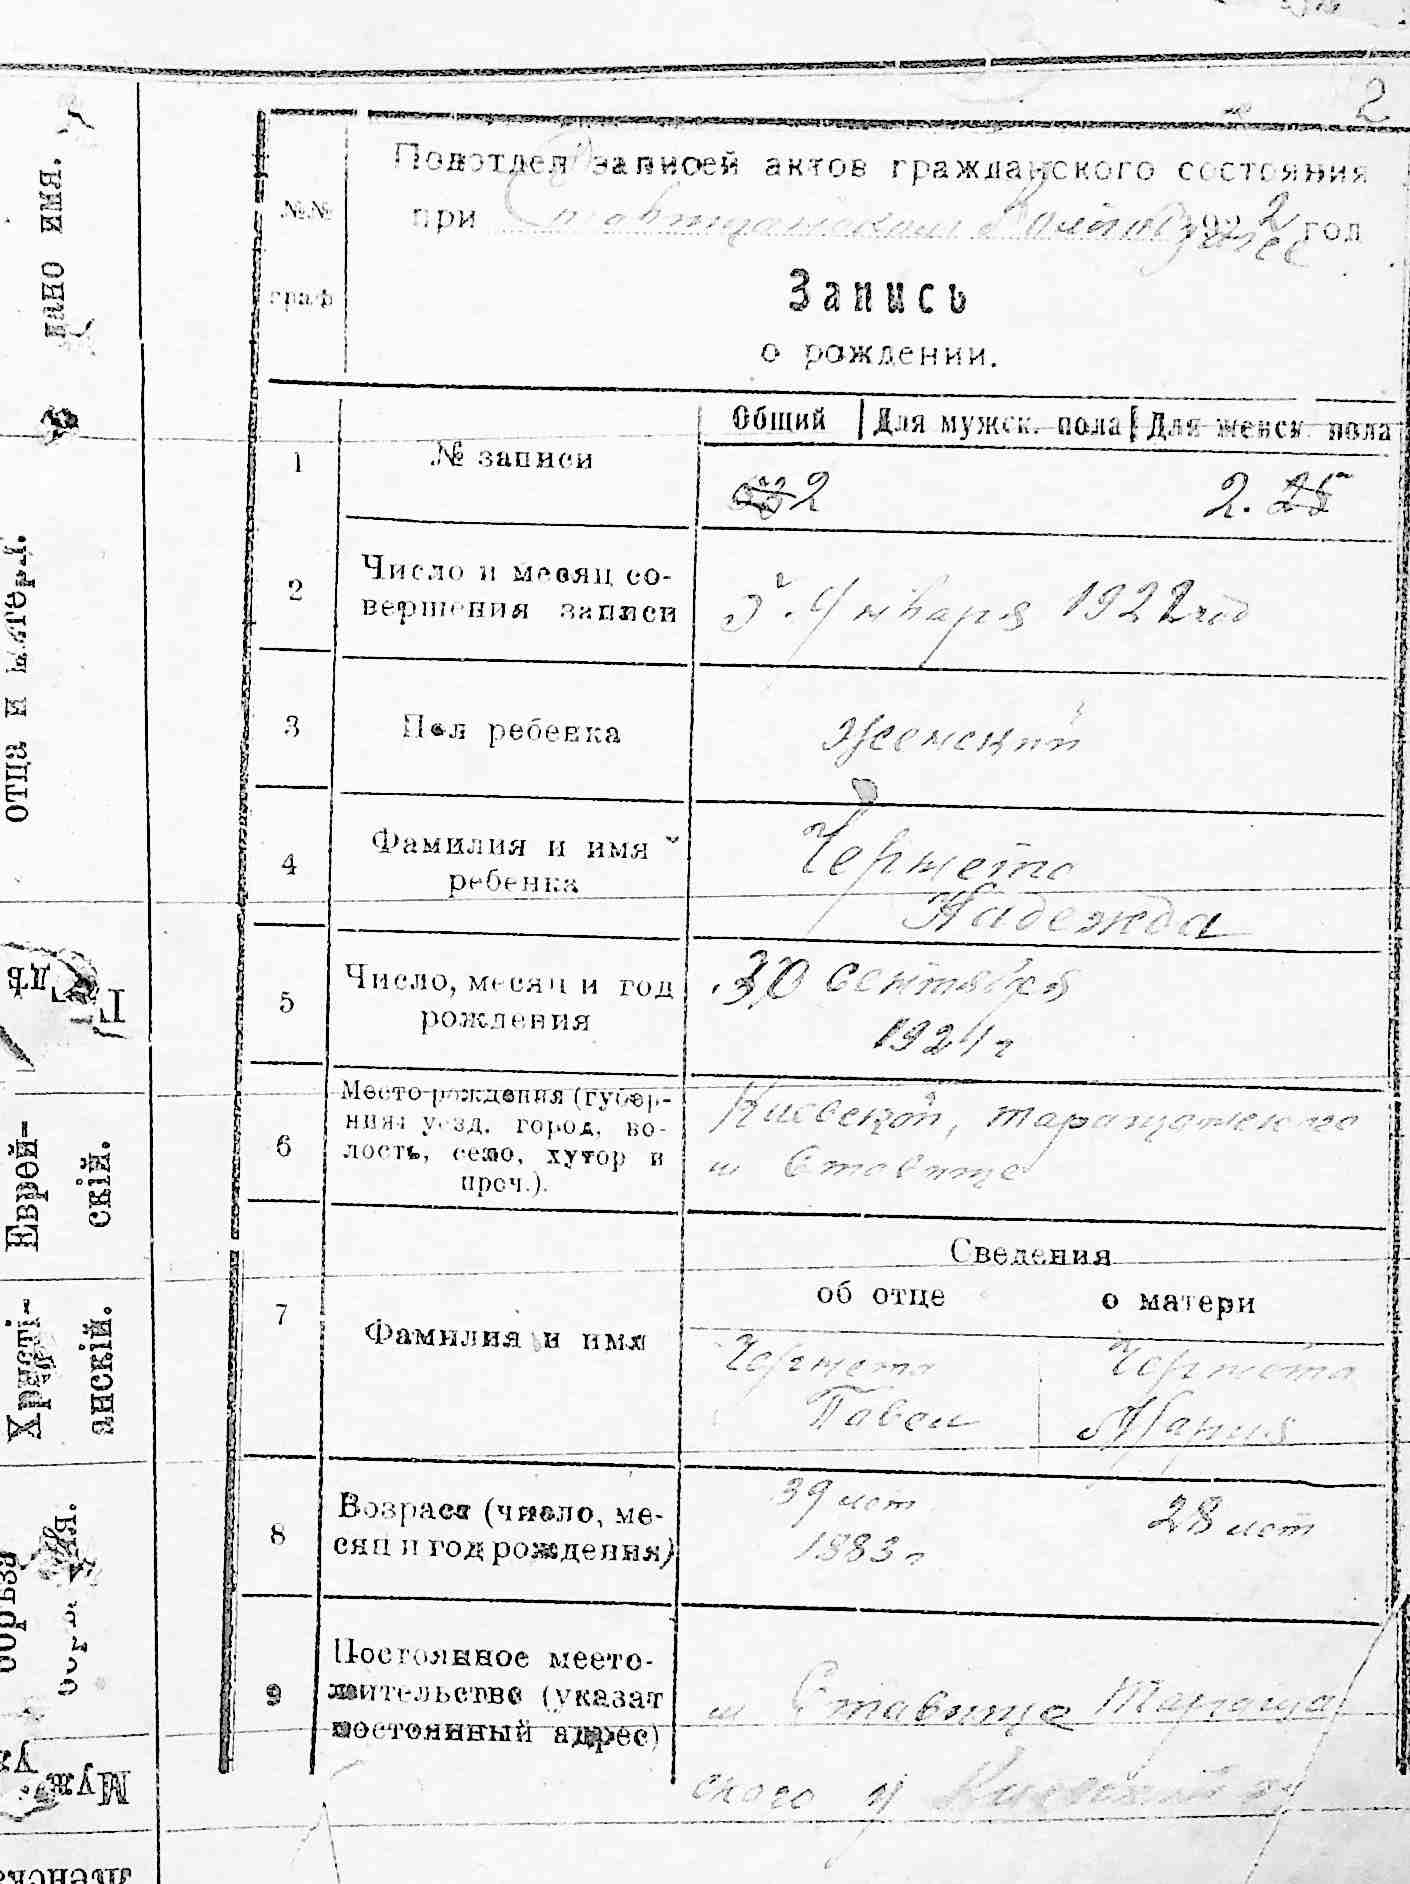 2
Подотдел записей актов гражданского состояния
№№ при Ставищанском 1922 год
граф
Запись
о рождении.
Общий Для мужск. пола Для женск. пола
1 № записи
2 2. 25
2 Число и месяц со-
вершения записи
3. Января 1922 год
3 Пол ребенка женский
4 Фамилия и имя
ребенка
Надежда
5 Число, месяц и год
рождения
30 сентября
1921 г
6 Место рождения (губер-
ния, уезд, город, во-
лость, село, хутор и
проч.).
Киевской, таращанского
м Ставище
Сведения
об отце о матери
7 Фамилия и имя
Павел Мария
8 Возраст (число, ме-
сяц и год рождения)
39 лет 28 лет
1883 г
9 Постоянное место-
жительство (указат
постоянный адрес)
м Ставище Тараща
ского у Киевской г
дано имя.
отца и матери.
Еврей-
скій.
Христі-
анскій.
обрѣза
Муж
Женска